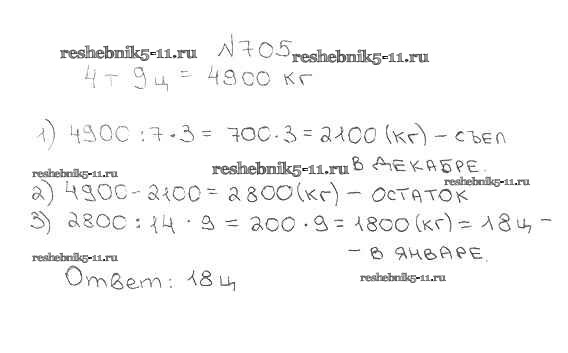 reshebnik5-11.ru №705 reshebnik5-11.ru
4 т 9 ц = 4900 кг
1) 4900 : 7 · 3 = 700 · 3 = 2100 (кг) – съел
reshebnik5-11.ru reshebnik5-11.ru в декабре. reshebnik5-11.ru
2) 4900 - 2100 = 2800 (кг) – остаток
3) 2800 : 14 · 9 = 200 · 9 = 1800 (кг) = 18 ц –
reshebnik5-11.ru – в январе.
Ответ: 18 ц reshebnik5-11.ru